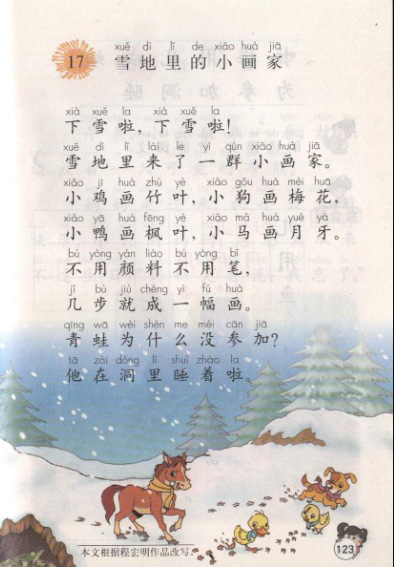 xuě dì lǐ de xiǎo huà jiā
17 雪地里的小画家
xià xuě la xià xuě la
下雪啦，下雪啦！
xuě dì lǐ lái le yì qún xiǎo huà jiā
雪地里来了一群小画家。
xiǎo jī huà zhú yè xiǎo gǒu huà méi huā
小鸡画竹叶，小狗画梅花，
xiǎo yā huà fēng yè xiǎo mǎ huà yuè yá
小鸭画枫叶，小马画月牙。
bú yòng yán liào bú yòng bǐ
不用颜料不用笔，
jǐ bù jiù chéng yì fú huà
几步就成一幅画。
qīng wā wèi shén me méi cān jiā
青蛙为什么没参加？
tā zài dòng lǐ shuì zháo la
他在洞里睡着啦。
本文根据程宏明作品改写。
123